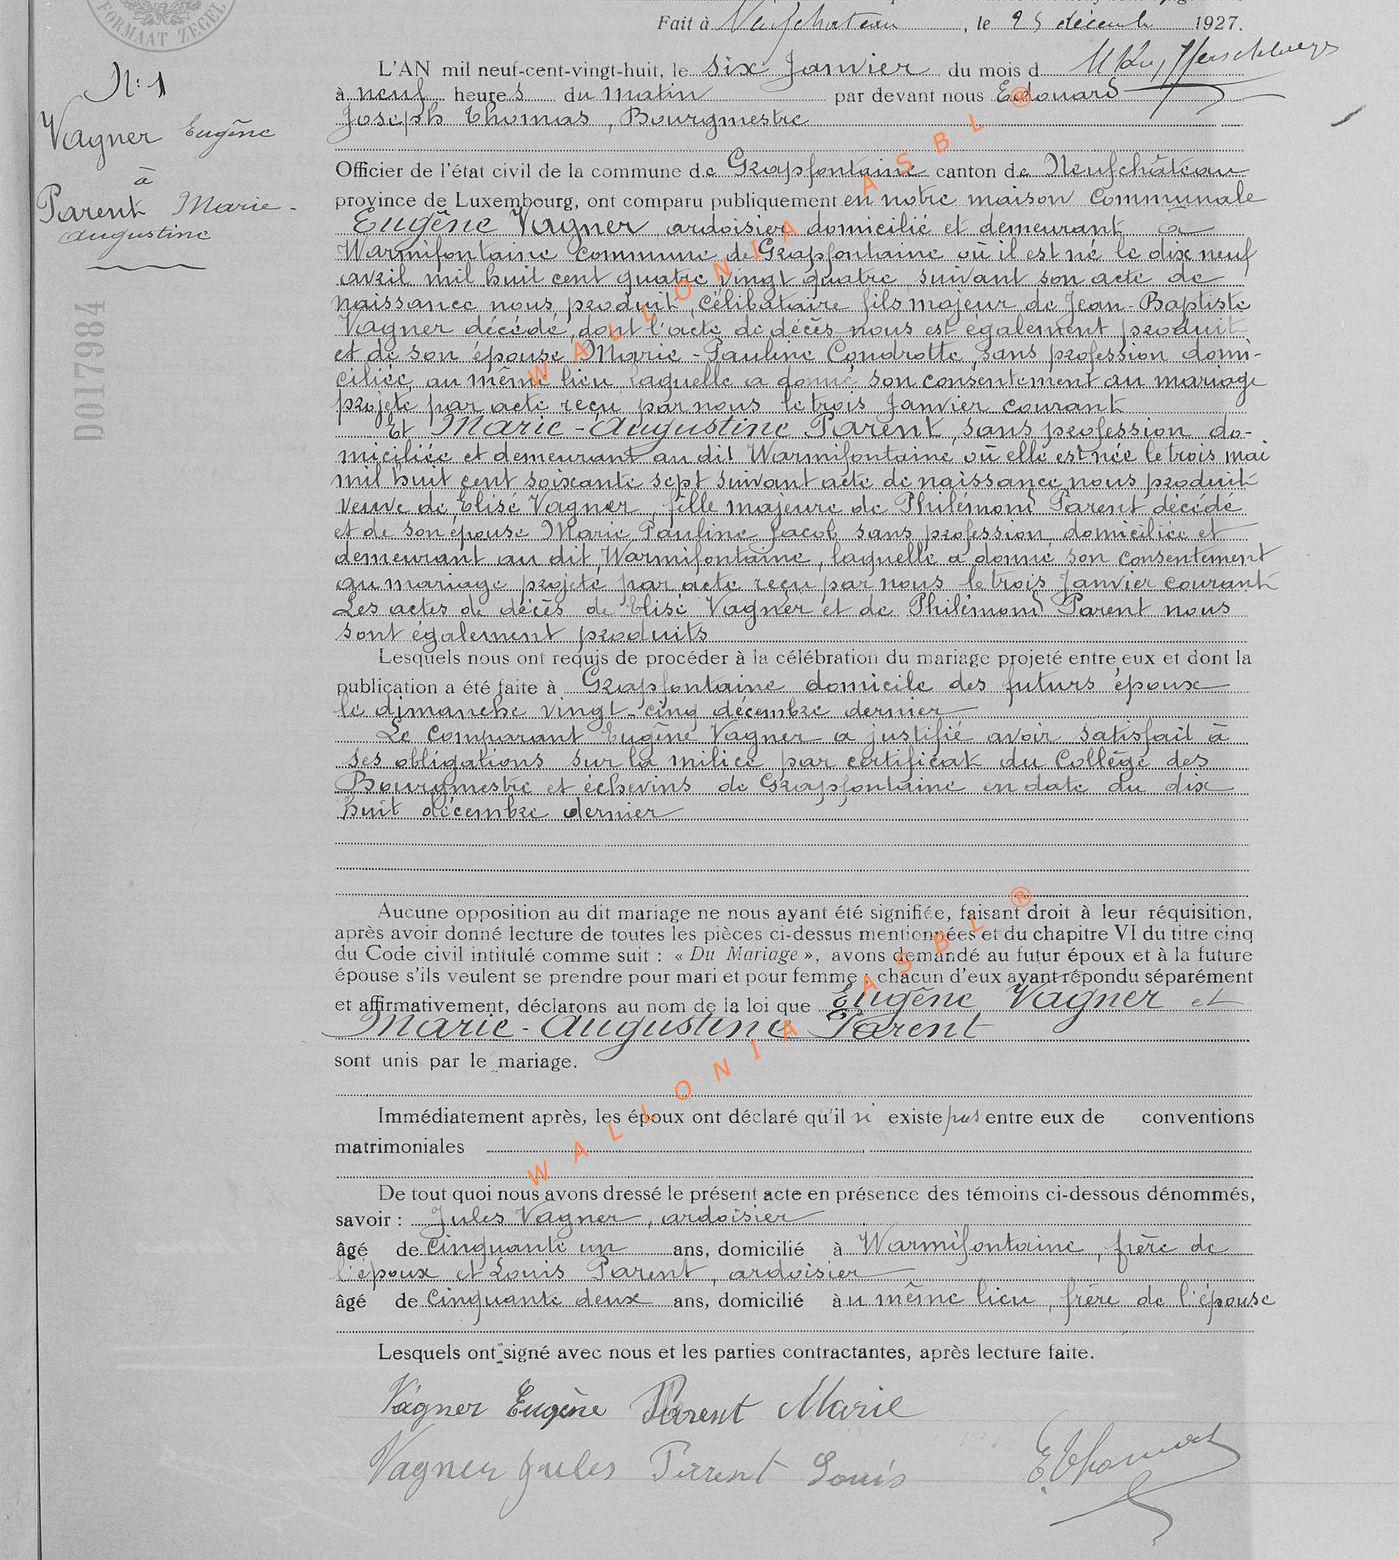 FORMAAT ZEGEL
Fait à Neufchateau, le 25 décemb 1927.
N: 1
Vagner Eugêne
à
Parent Marie-
augustine
D017984
L'AN mil neuf-cent-vingt-huit, le six Janvier du mois d
à neuf heures du matin par devant nous Edouard
Joseph Thomas, Bourgmestre
Officier de l'état civil de la commune de Grapfontaine canton de Neufchâteau
province de Luxembourg, ont comparu publiquement en notre maison Communale
Eugêne Vagner ardoisier domicilié et demeurant à
Warmifontaine commune de Grapfontaine où il est né le dix neuf
avril mil huit cent quatre vingt quatre suivant son acte de
naissance nous produit, célibataire fils majeur de Jean-Baptiste
Vagner décédé, dont l'acte de décès nous est également produit
et de son épouse Marie-Pauline Condrotte, sans profession domi-
ciliée au même lieu laquelle a donné son consentement au mariage
projeté par acte reçu par nous le trois Janvier courant
Et Marie-Augustine Parent, sans profession do-
miciliée et demeurant au dit Warmifontaine où elle est née le trois mai
mil huit cent soixante sept suivant acte de naissance nous produit
veuve de Elisé Vagner, fille majeure de Philémond Parent décédé
et de son épouse Marie Pauline Jacob sans profession domiciliée et
demeurant au dit Warmifontaine, laquelle a donné son consentement
au mariage projeté par acte reçu par nous le trois Janvier courant
Les actes de décès de Elisé Vagner et de Philémond Parent nous
sont également produits
Lesquels nous ont requis de procéder à la célébration du mariage projeté entre eux et dont la
publication a été faite à Grapfontaine domicile des futurs époux
le dimanche vingt-cinq décembre dernier
Le comparant Eugêne Vagner a justifié avoir satisfait à
ses obligations sur la milice par certificat du Collège des
Bourgmestre et échevins de Grapfontaine en date du dix
huit décembre dernier
Aucune opposition au dit mariage ne nous ayant été signifiée, faisant droit à leur réquisition,
après avoir donné lecture de toutes les pièces ci-dessus mentionnées et du chapitre VI du titre cinq
du Code civil intitulé comme suit : « Du Mariage », avons demandé au futur époux et à la future
épouse s'ils veulent se prendre pour mari et pour femme ; chacun d'eux ayant répondu séparément
et affirmativement, déclarons au nom de la loi que Eugêne Vagner et
Marie-Augustine Parent
sont unis par le mariage.
Immédiatement après, les époux ont déclaré qu'il n' existe pas entre eux de conventions
matrimoniales
De tout quoi nous avons dressé le présent acte en présence des témoins ci-dessous dénommés,
savoir : Jules Vagner, ardoisier
âgé de cinquante un ans, domicilié à Warmifontaine, frère de
l'époux et Louis Parent, ardoisier
âgé de cinquante deux ans, domicilié au même lieu, frère de l'épouse
Lesquels ont signé avec nous et les parties contractantes, après lecture faite.
Vagner Eugène Parent Marie
Vagner Jules Parent Louis E. Thomas
WALLONIA ASBL ®
WALLONIA ASBL ®